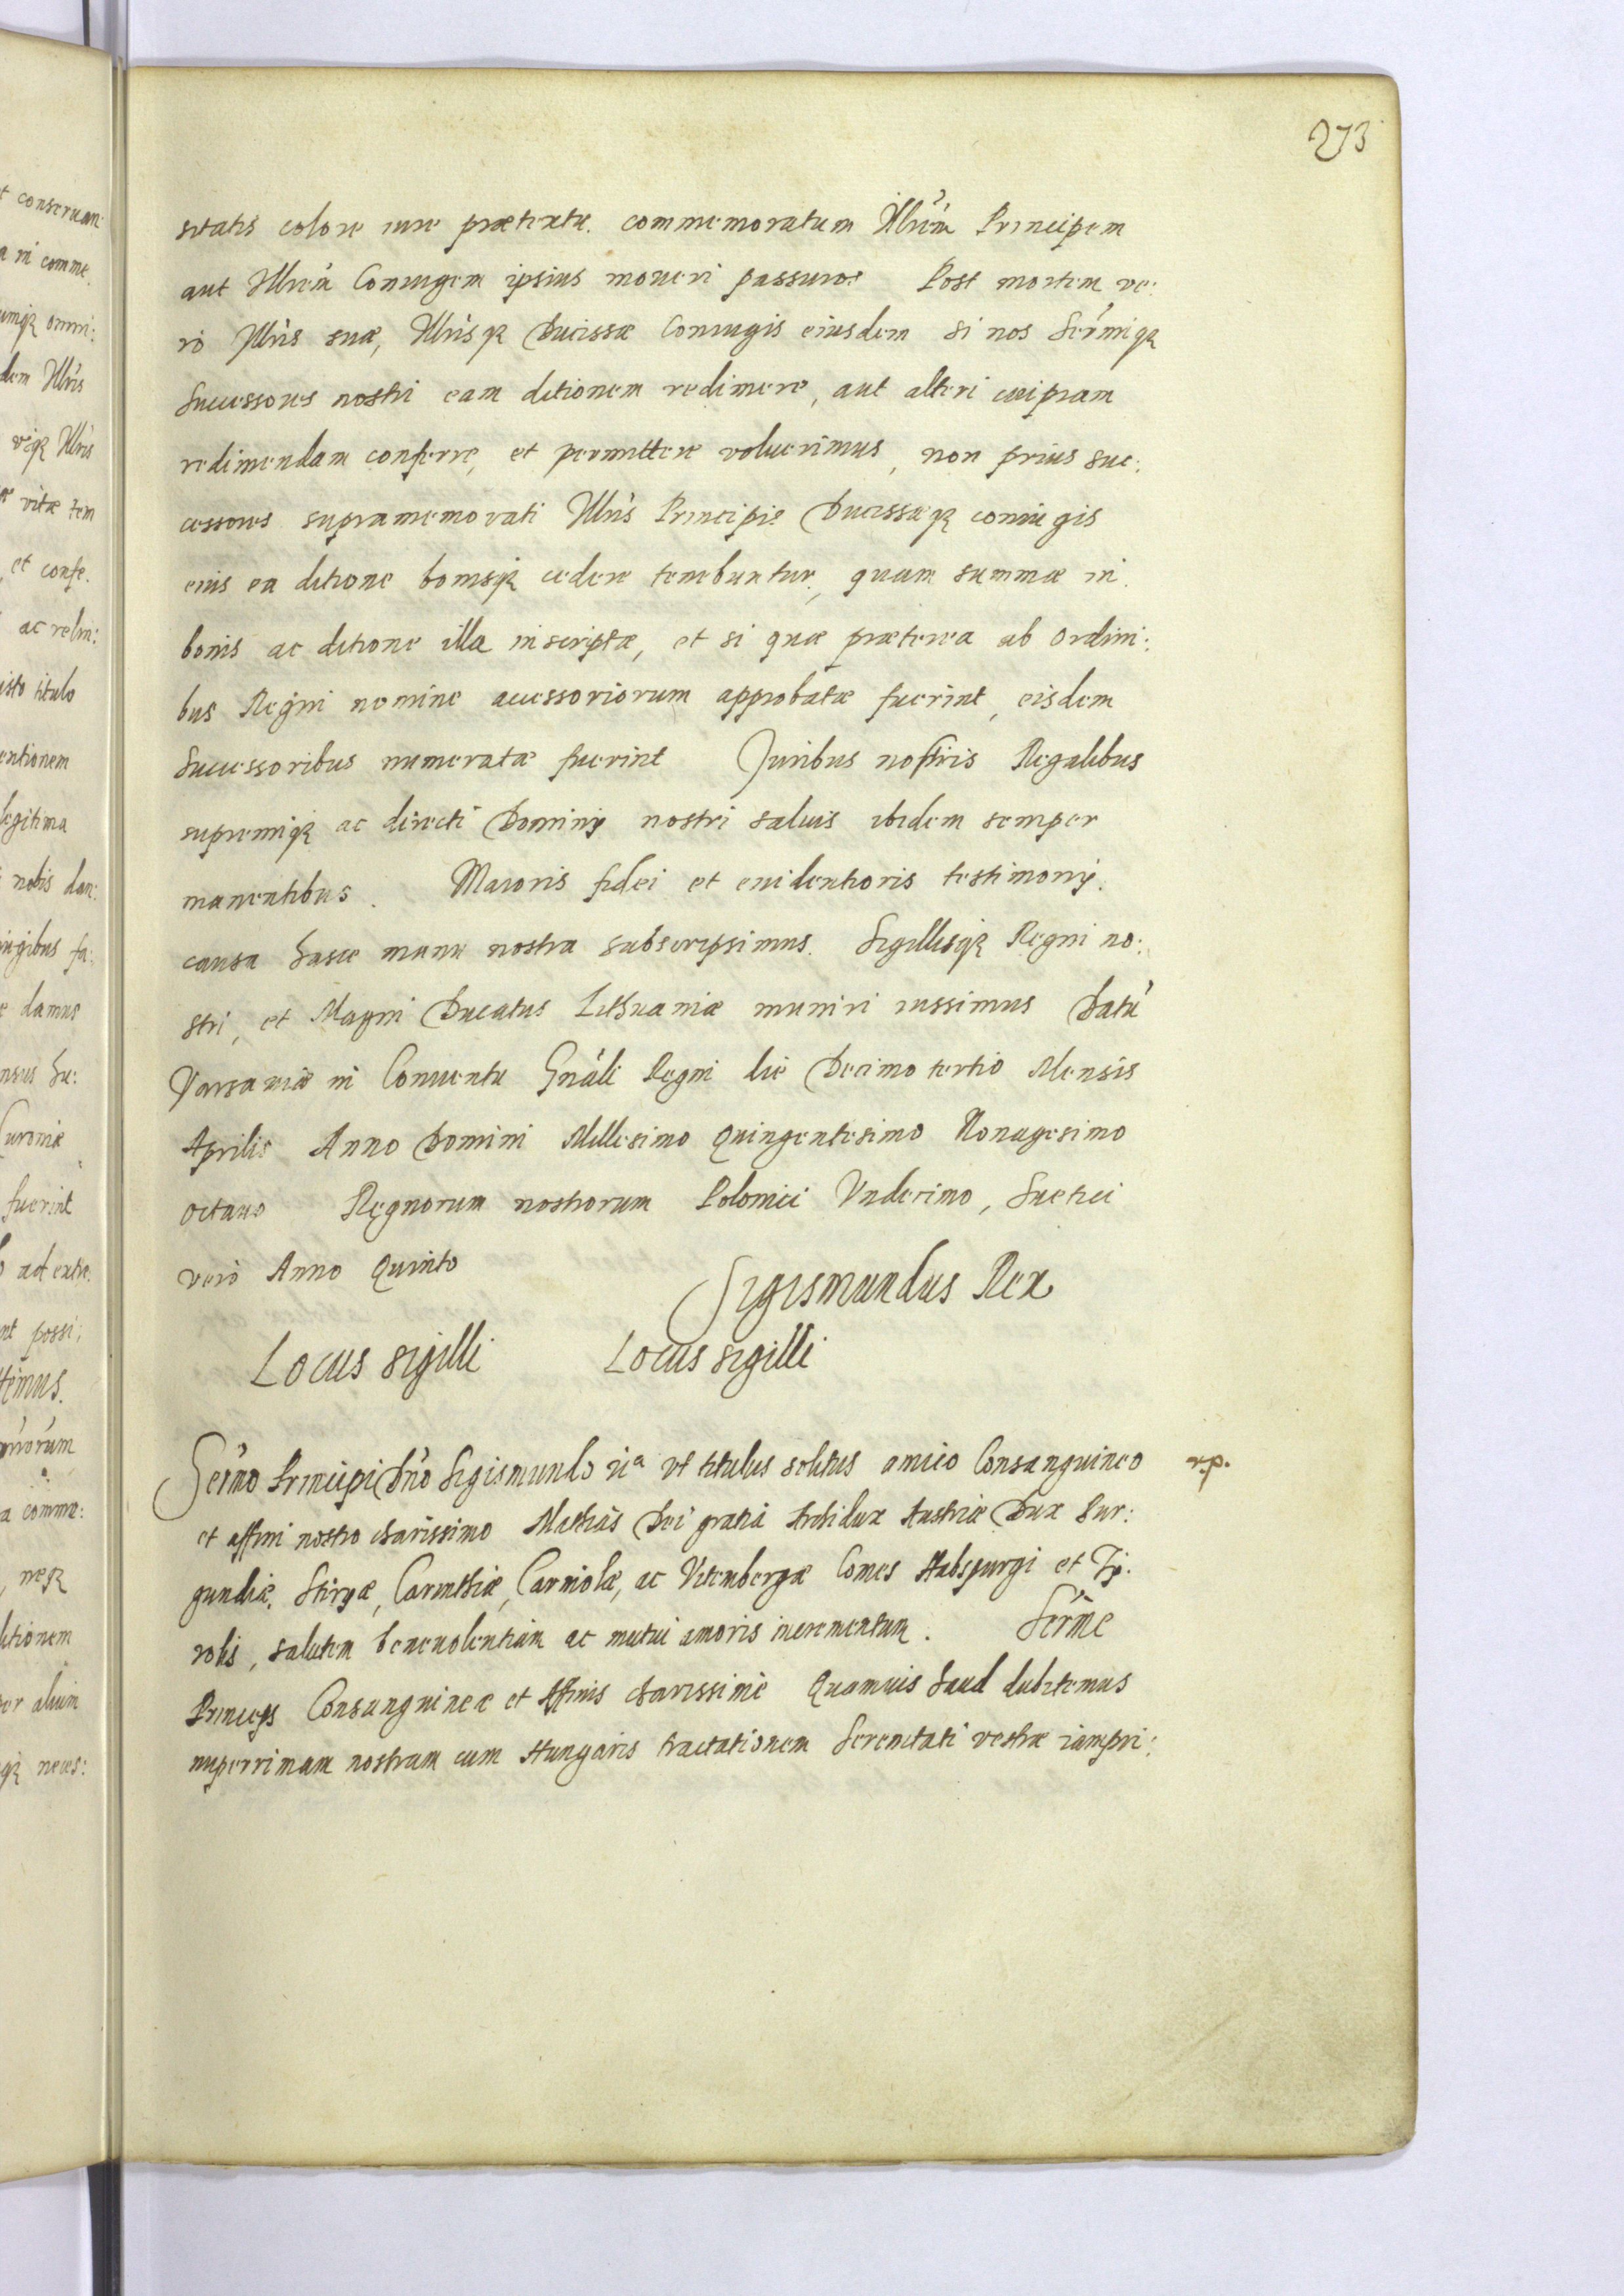 273
sitatis colore iure prætextu. commemoratum Illrem̃ Principem
aut Illrem̃ Coniugem ipsius moueri passuros Post mortem ve:
ro Illris̃ suæ, Illrisq̃ Ducissæ Coniugis eiusdem si nos Serm̃iq
Successores nostri eam ditionem redimere, aut alteri cuipiam
redimendam conferre, et permittere voluerimus, non prius suc:
cessores supramemorati Illris̃ Principis Ducissæq coniugis
eius ea ditione bonisq cedere tenebuntur, quam summæ in
bonis ac ditione illa inscriptæ, et si quæ præterea ab ordini:
bus Regni nomine accessoriorum approbatæ fuerint, eisdem
Successoribus numeratæ fuerint Juribus nostris Regalibus
supremiq ac directi Dominij nostri saluis ibidem semper
manentibus. Maioris fidei et euidentioris testimonij.
causa hasce manu nostra subscripsimus. Sigillisq Regni no:
stri, et Magni Ducatus Lithuaniæ muniri iussimus Datũ
Varsauiæ in Conuentu Gnãli Regni die Decimo tertio Mensis
Aprilis Anno Domini Millesimo Quingentesimo Nonagesimo
octauo Regnorum nostrorum Polonici Vndecimo, Suetici
verò Anno Quinto
Sigismundus Rex
Locus sigilli Locus sigilli
Serm̃o Principi Dnõ Sigismundo ut titulus solitus amico Consanguineo
et affini nostro charissimo Mathias Dei gratia Archidux Austriæ Dux Bur:
gundiæ, Stiryæ, Carinthiæ, Carniolæ, ac Vitembergæ Comes Habspurgi et Ty:
rolis, salutem beneuolentiam ac mutui amoris incrementum. Serm̃e
Princeps Consanguinee et Affinis charissime Quamuis haud dubitemus
nuperrimam nostram cum Hungaris tractationem Serenitati vestræ iampri:
t conseruan
a in comme.
umq omni:
dem Illris̃
viq Illris̃
vitæ tem
, et confe.
ac relin:
isto titulo
entionem
legitima
nobis dan:
iugibus fa:
e damus
nsus Su:
Curoniæ
fuerint
ad extre.
nt possi:
ttimus.
a comme:
, neq
ditionem
er alium
q neces: